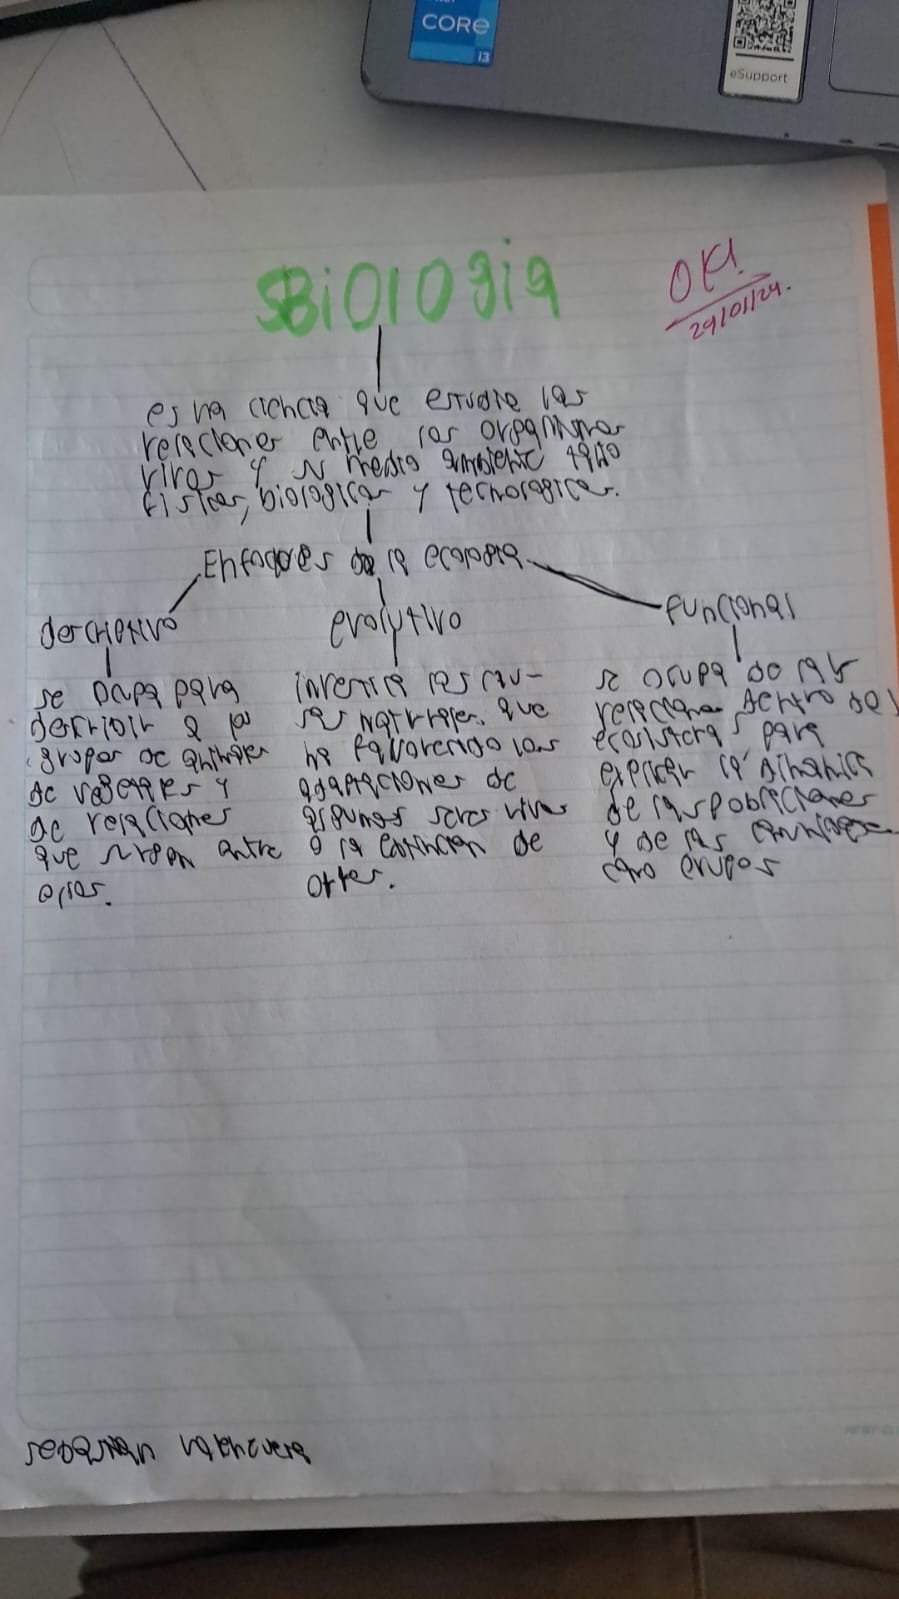 CORE
i3
eSupport
Biologia
OK!
29/01/24.
es una ciencia que estudia las
relaciones entre los organismos
vivos y su medio ambiente tanto
fisicas, biologicas y tecnologicas.
Enfoques de la ecologia
descriptivo
evolutivo
funcional
se ocupa para
describir a los
grupos de animales
de vegetales y
de relaciones
que surgen entre
ellos.
investiga las cau-
sas naturales. que
ha favorecido las
adaptaciones de
algunos seres vivos
o la extincion de
otros.
se ocupa de las
relaciones dentro del
ecosistema para
explicar la dinamica
de las poblaciones
y de las
como grupos
sebastian valenzuela